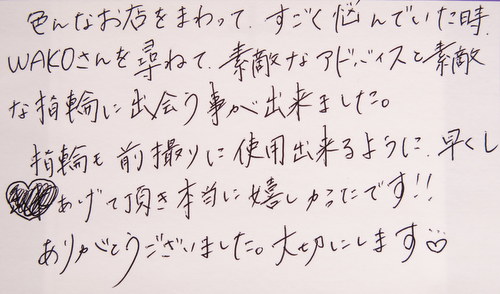 色んなお店をまわって、すごく悩んでいた時、
WAKOさんを尋ねて、素敵なアドバイスと素敵
な指輪に出会う事が出来ました。
指輪も前撮りに使用出来るように、早くし
あげて頂き本当に嬉しかったです!!
ありがとうございました。大切にします♡